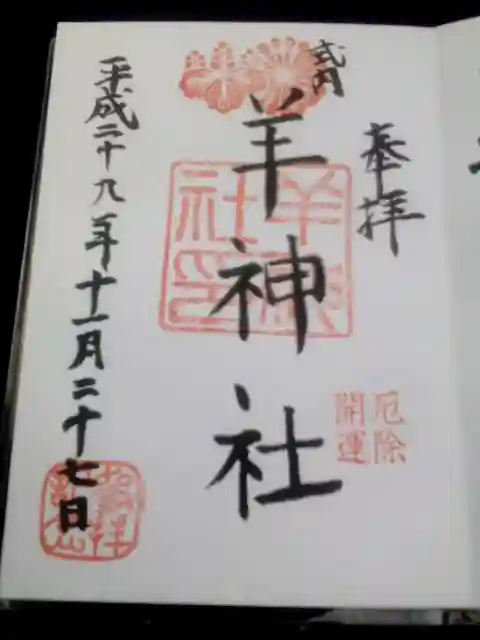 奉拝
式内
羊神社
羊神
社印
厄除
開運
平成二十九年十一月二十七日